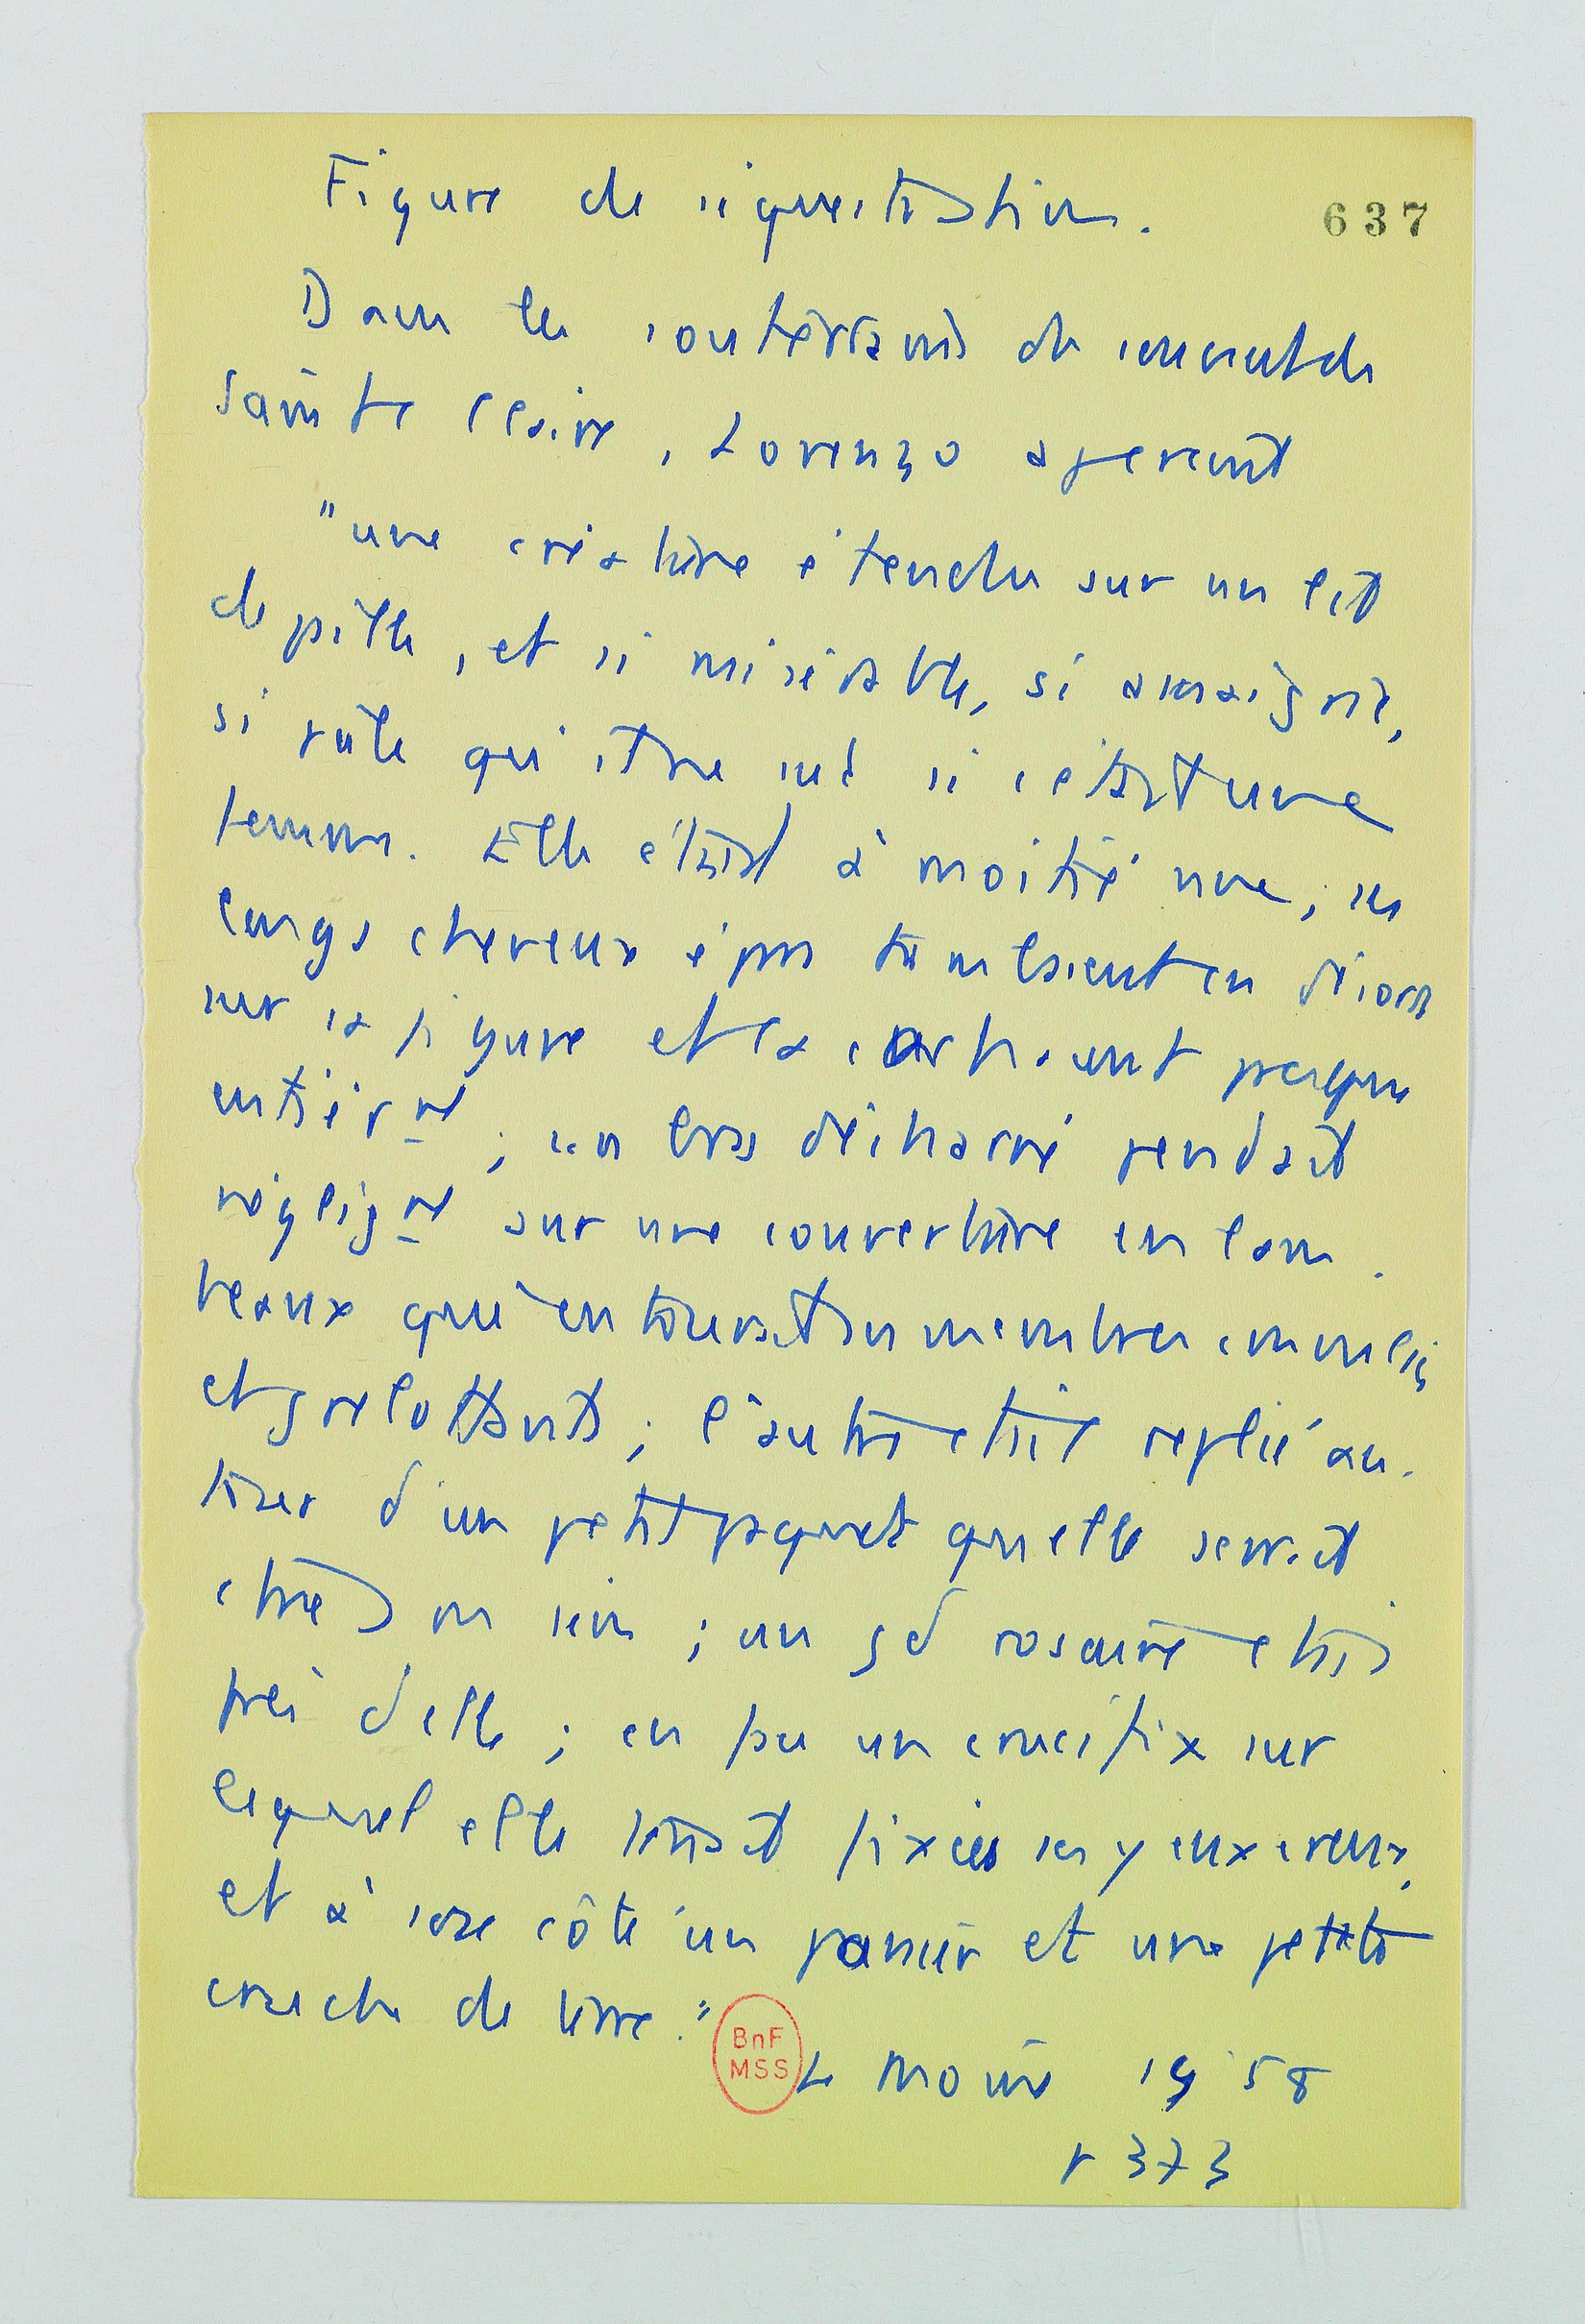 Figure de séquestration.
637
Dans les souterrains du couvent de
Sainte Claire, Lorenzo aperçoit
"une créature étendue sur un lit
de paille, et si misérable, si amaigrie,
si pâle qu'
femme. Elle était à moitié nue ; ses
longs cheveux épars tombaient en désordre
sur sa figure et la cachaient presque
entièrᵐᵗ ; un bras décharné pendait
négligᵐᵗ sur une couverture en lam-
beaux qui entourait ses membres convulsés
et grelottants ; l'autre était replié au-
tour d'un petit paquet qu'elle serrait
contre son sein ; un gd rosaire était
près d'elle ; en face un crucifix sur
lequel elle tenait fixés ses yeux creux,
et à son côté un panier et une petite
cruche de terre."
BnF
MSS
Le Moine 1958
p 373